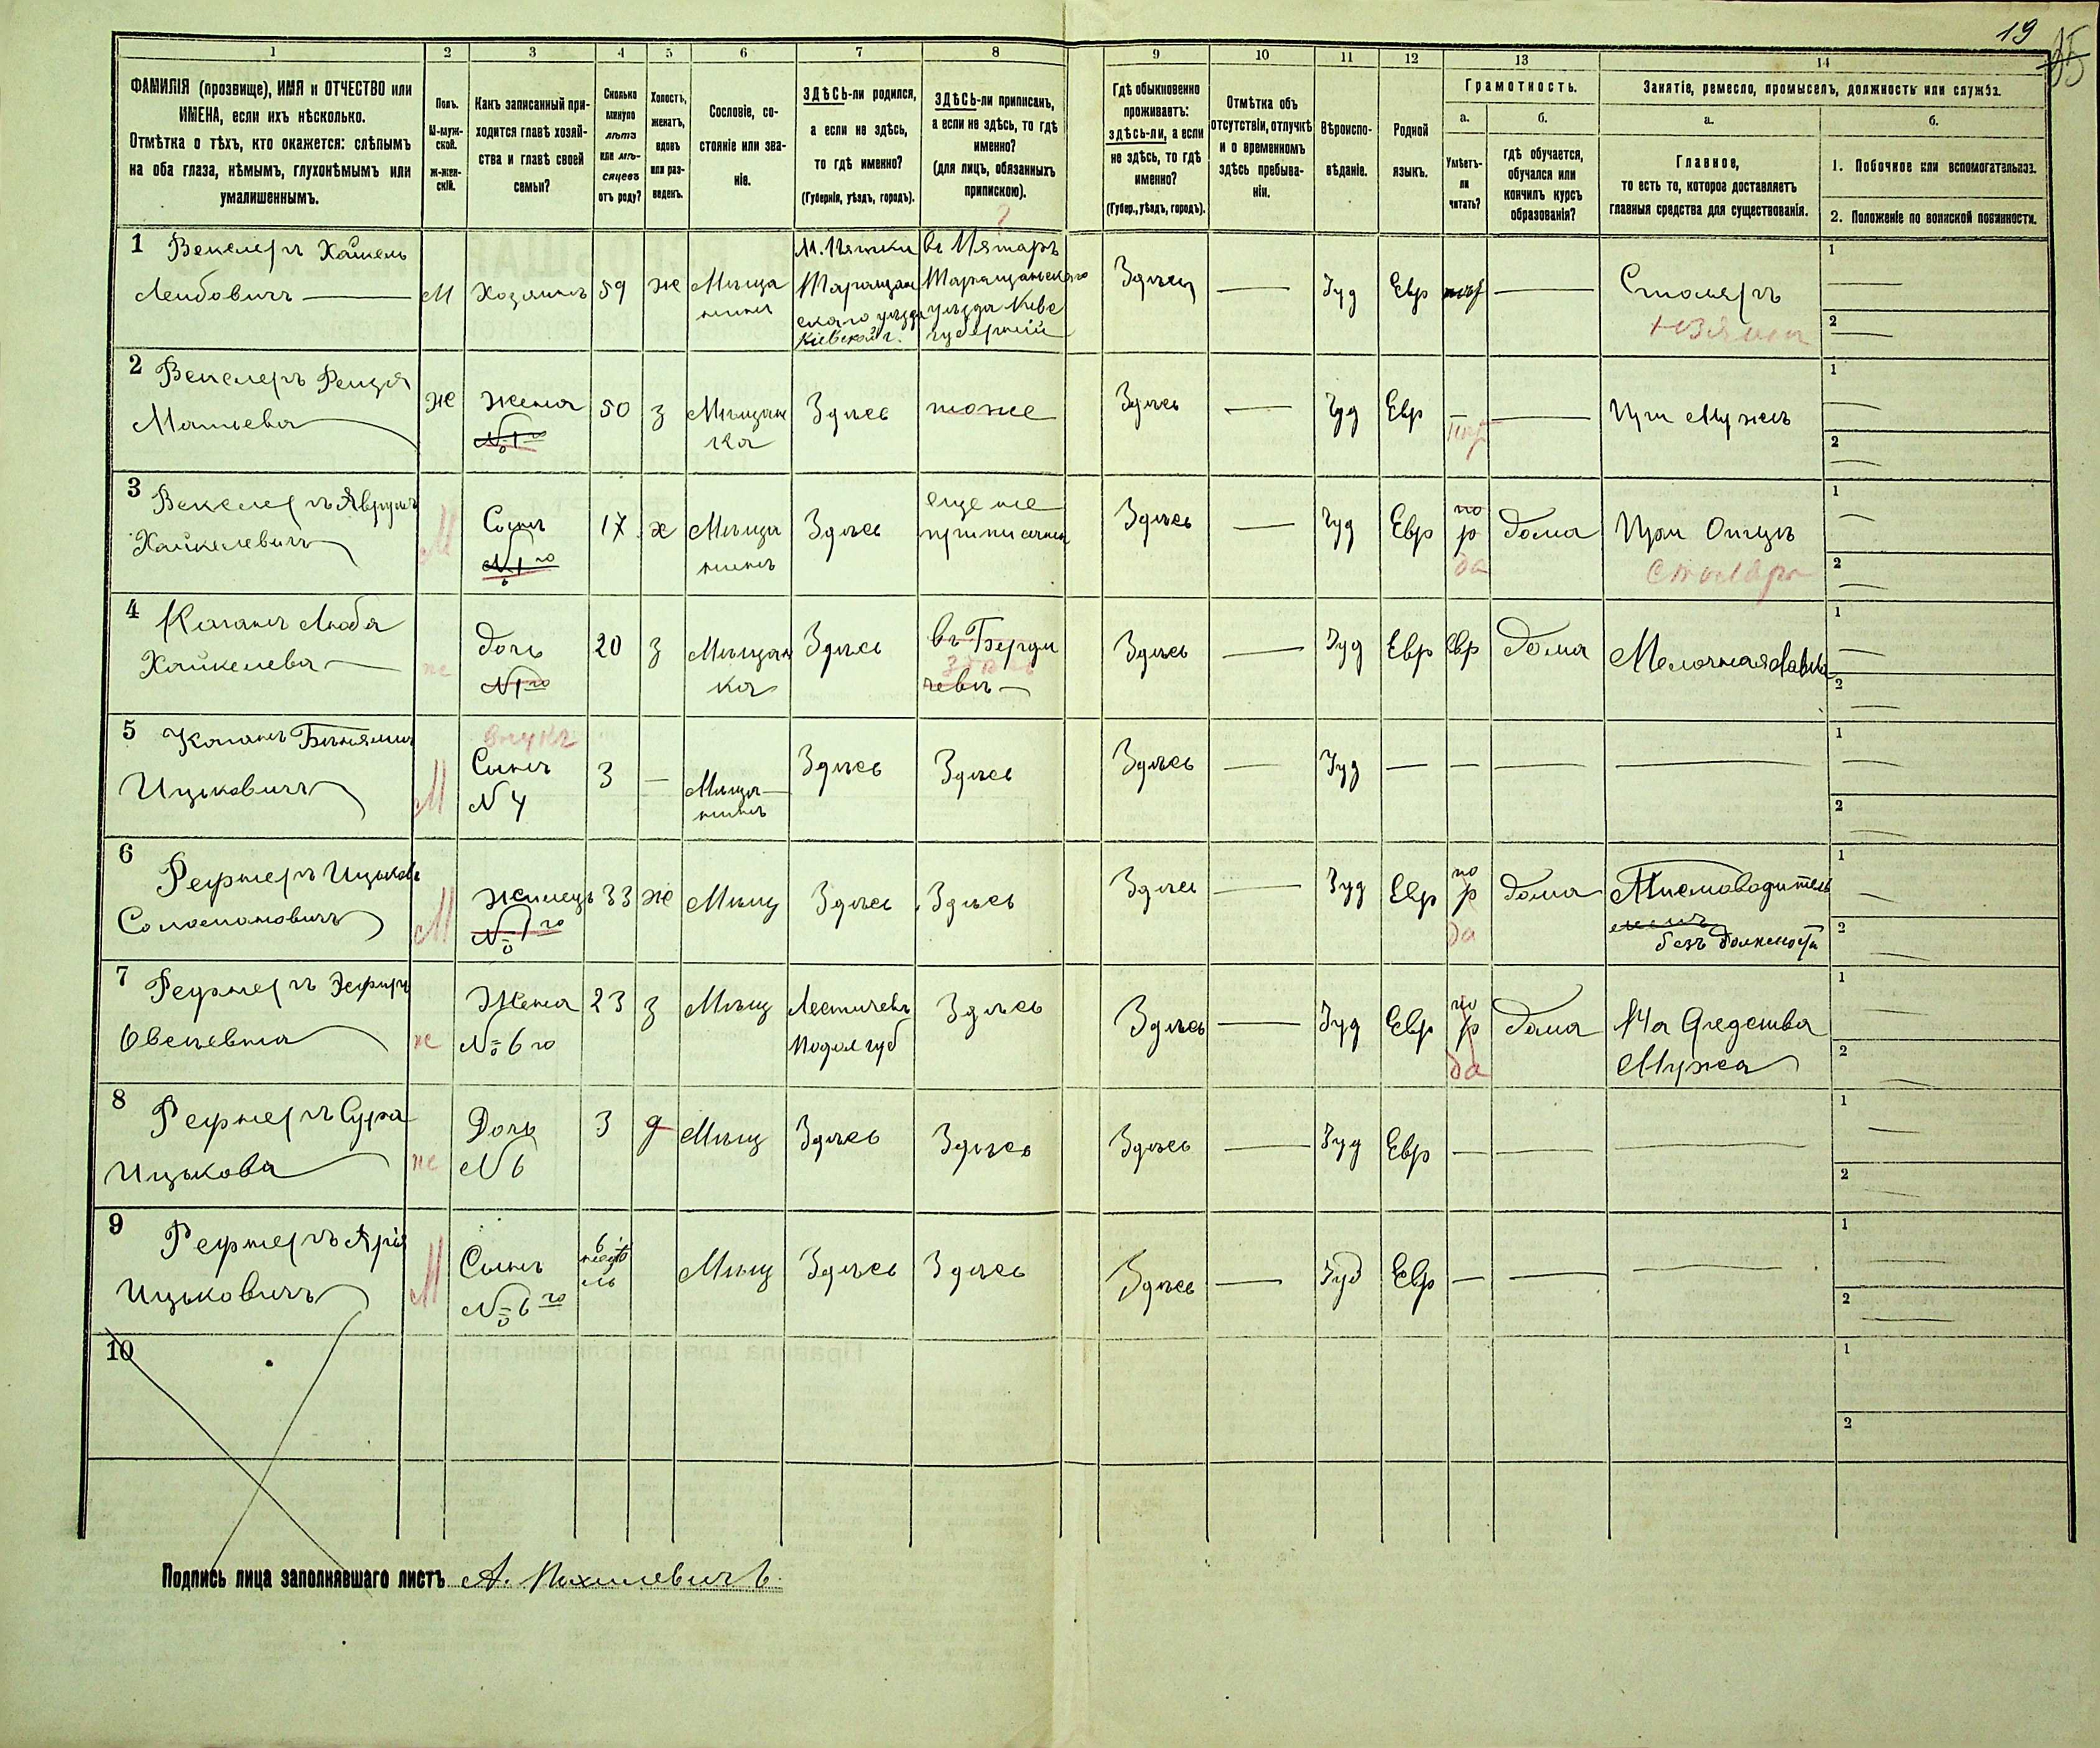 19
1 2 3 4 5 6 7 8 9 10 11 12 13 14
ФАМИЛІЯ (прозвище), ИМЯ и ОТЧЕСТВО или
ИМЕНА, если ихъ нѣсколько.
Отмѣтка о тѣхъ, кто окажется: слѣпымъ
на оба глаза, нѣмымъ, глухонѣмымъ или
умалишеннымъ.
Полъ.
М-муж-
ской.
Ж-жен-
скій.
Какъ записанный при-
ходится главѣ хозяй-
ства и главѣ своей
семьи?
Сколько
минуло
лѣтъ
или мѣ-
сяцевъ
отъ роду?
Холостъ,
женатъ,
вдовъ
или раз-
веденъ.
Сословіе, со-
стояніе или зва-
ніе.
ЗДѢСЬ-ли родился,
а если не здѣсь,
то гдѣ именно?
(Губернія, уѣздъ, городъ).
ЗДѢСЬ-ли приписанъ,
а если не здѣсь, то гдѣ
именно?
(для лицъ, обязанныхъ
припискою).
Гдѣ обыкновенно
проживаетъ:
здѣсь-ли, а если
не здѣсь, то гдѣ
именно?
(Губер., уѣздъ, городъ).
Отмѣтка объ
отсутствіи, отлучкѣ
и о временномъ
здѣсь пребыва-
ніи.
Вѣроиспо-
вѣданіе.
Родной
языкъ.
Грамотность.
а.
Умѣетъ-
ли
читать?
б.
гдѣ обучается,
обучался или
кончилъ курсъ
образованія?
Занятіе, ремесло, промыселъ, должность или служба.
а.
Главное,
то есть то, которое доставляетъ
главныя средства для существованія.
б.
1. Побочное или вспомогательное.
2. Положеніе по воинской повинности.
1 Векслеръ Хайкель
Лейбовичъ
М
Хозяинъ
59
ж
Мѣща
нинъ
М. Пятки
Таращан
скаго уѣзда
Кіевской г.
въ Пятарѣ
Таращанскаго
уѣзда Кіев
губерніи
Здѣсь
Іуд
Евр
Столяръ
1
2
2 Векслеръ Рейзя
Мотьева
ж
Жена
№ 1го
50
з
Мѣщан
ка
Здѣсь
тоже
Здѣсь
Іуд
Евр
При Мужѣ
1
2
3 Векслеръ Аврумъ
Хайкелевичъ
М
Сынъ
№ 1го
17
х
Мѣща
нинъ
Здѣсь
еще не
приписанъ
Здѣсь
Іуд
Евр
по
р
да
дома
При Отцѣ
Столяръ
1
2
4 Коганъ Люба
Хайкелева
ж
дочь
№ 1го
20
з
Мѣщан
ка
Здѣсь
въ Берди
чевѣ
здѣсь
Здѣсь
Іуд
Евр
Евр
дома
Мелочная лавка
1
2
5 Коганъ Беньяминъ
Ицьковичъ
М
внукъ
Сынъ
№ 4
3
Мѣща
нинъ
Здѣсь
Здѣсь
Здѣсь
Іуд
1
2
6 Рефнеръ Ицьковъ
Соломоновичъ
М
Жилецъ
№ 1го
33
ж
Мѣщ
Здѣсь
Здѣсь
Здѣсь
Іуд
Евр
по
р
да
дома
Письмоводитель
безъ должности
1
2
7 Рефнеръ Эсфирь
Овсеевна
ж
Жена
№ 6го
23
з
Мѣщ
Летичевъ
Подол губ
Здѣсь
Здѣсь
Іуд
Евр
по
р
да
дома
На Средства
Мужа
1
2
8 Рефнеръ Сура
Ицькова
ж
Дочь
№ 6
3
д
Мѣщ
Здѣсь
Здѣсь
Здѣсь
Іуд
Евр
1
2
9 Рефнеръ Арія
Ицьковичъ
М
Сынъ
№ 6го
6
недѣ
ль
Мѣщ
Здѣсь
Здѣсь
Здѣсь
Іуд
Евр
1
2
10
1
2
Подпись лица заполнявшаго листъ А. Похилевичъ